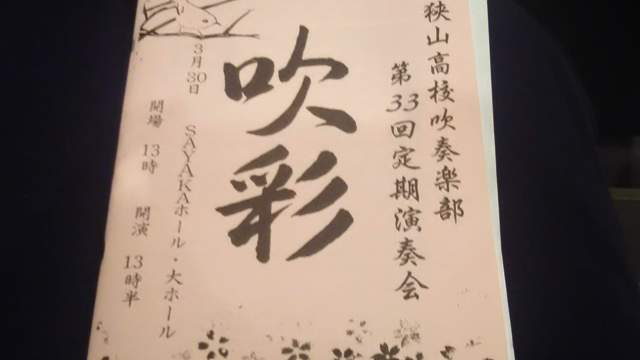 狭山高校吹奏楽部
第33回定期演奏会
吹彩
3月30日 SAYAKAホール・大ホール
開場 13時 開演 13時半